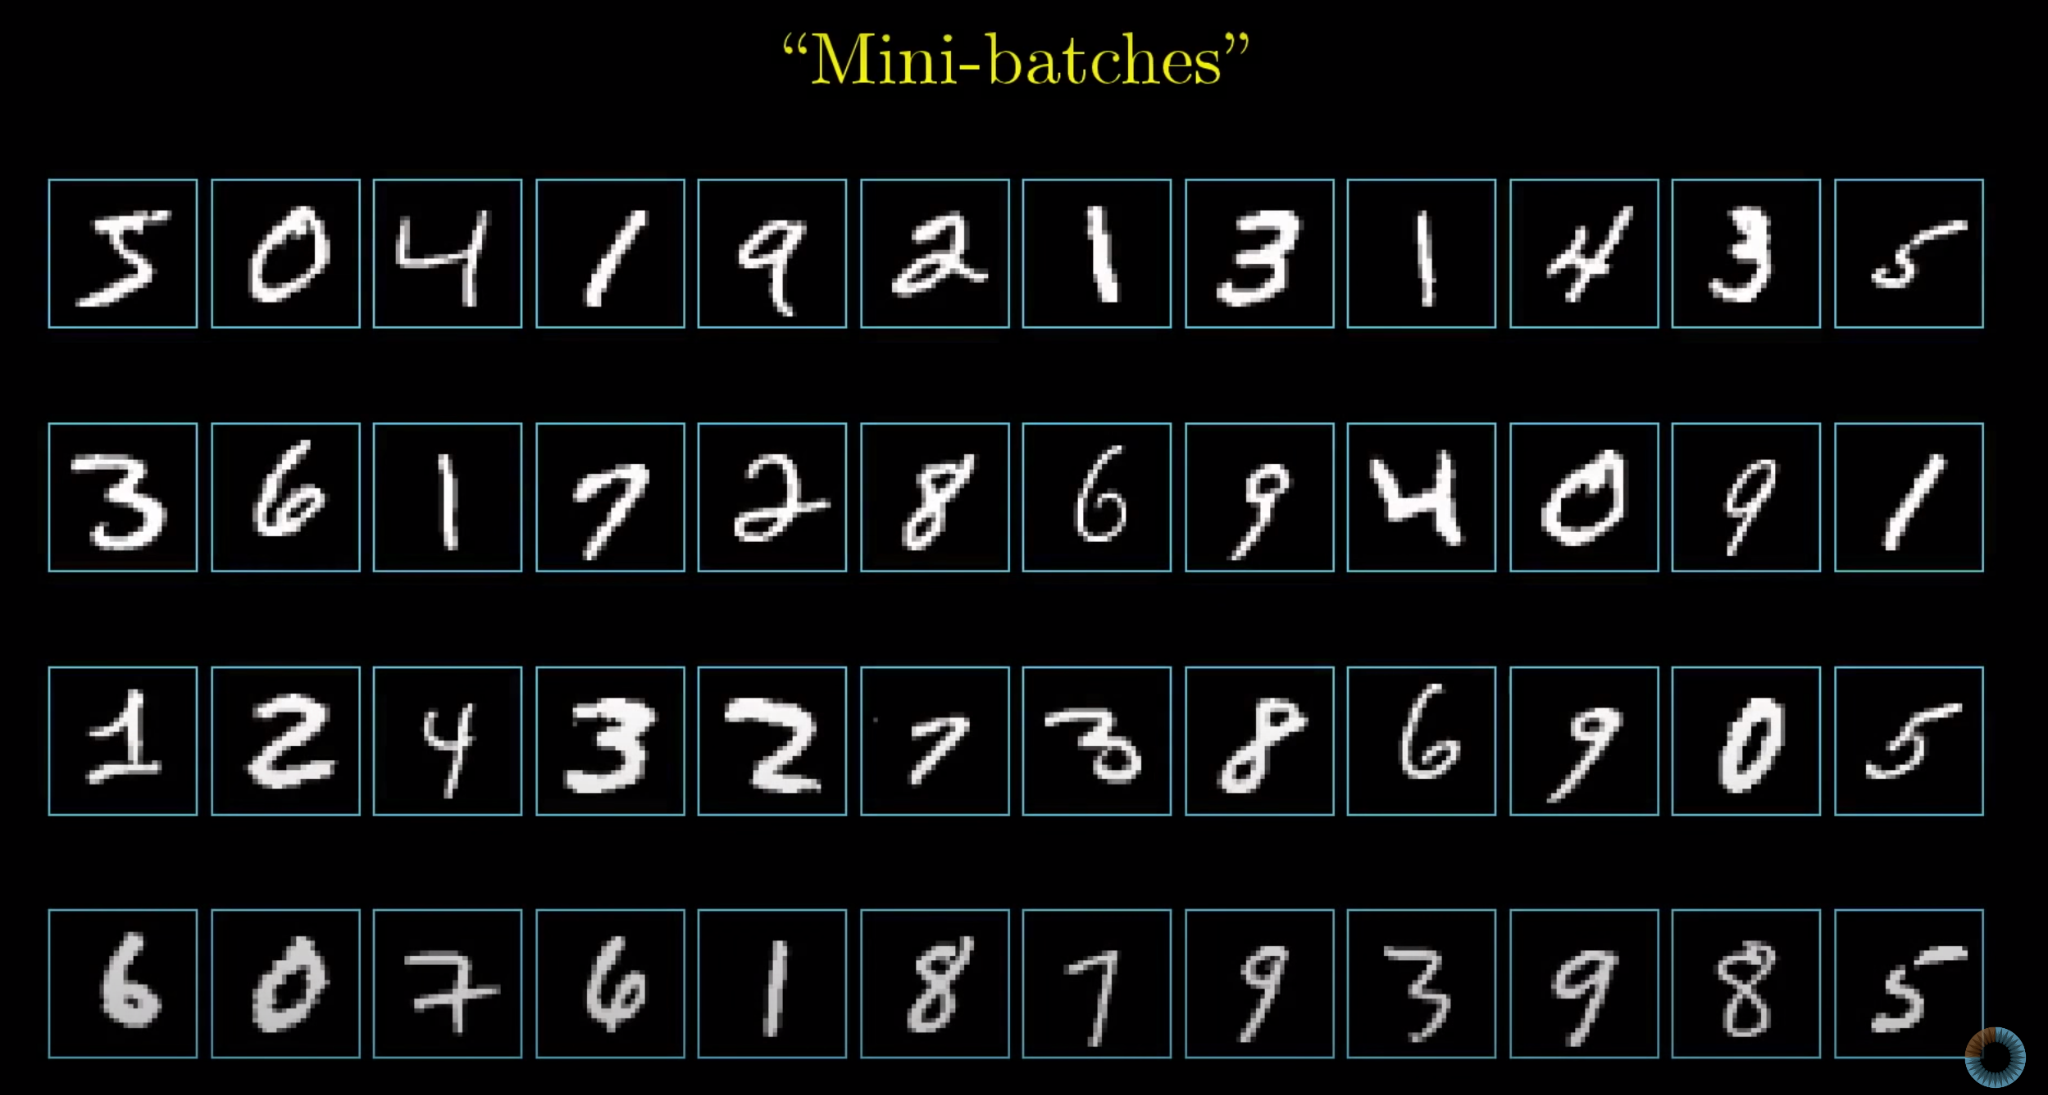 “Mini-batches”
5 0 4 1 9 2 1 3 1 4 3 5
3 6 1 7 2 8 6 9 4 0 9 1
1 2 4 3 2 7 3 8 6 9 0 5
6 0 7 6 1 8 7 9 3 9 8 5